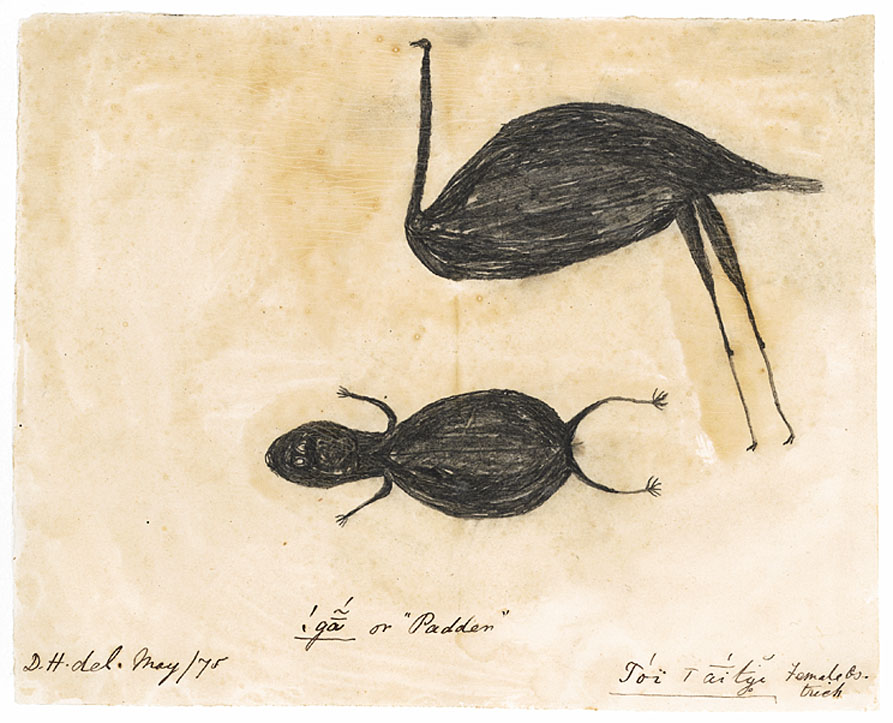 !gā̃́ or "Padden"
D.H. del. May/75
Tóï Tā́ityi Female Os-
trich